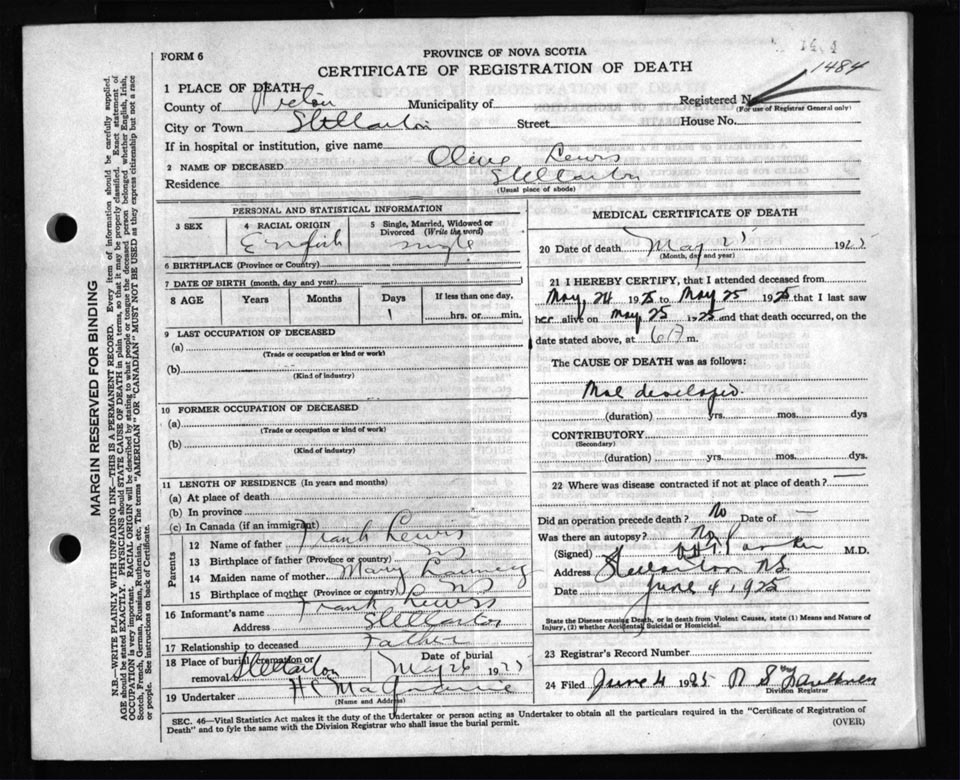 FORM 6
PROVINCE OF NOVA SCOTIA
CERTIFICATE OF REGISTRATION OF DEATH
1484
1 PLACE OF DEATH
County of Pictou Municipality of Registered No.
(For use of Registrar General only)
City or Town Stellarton Street House No.
If in hospital or institution, give name
2 NAME OF DECEASED Olive Lewis
Residence Stellarton
(Usual place of abode)
PERSONAL AND STATISTICAL INFORMATION
3 SEX 4 RACIAL ORIGIN 5 Single, Married, Widowed or Divorced (Write the word)
English single
6 BIRTHPLACE (Province or Country)
7 DATE OF BIRTH (month, day and year)
8 AGE Years Months Days If less than one day,
1 hrs. or min.
9 LAST OCCUPATION OF DECEASED
(a)
(Trade or occupation or kind or work)
(b)
(Kind of industry)
10 FORMER OCCUPATION OF DECEASED
(a)
(Trade or occupation or kind or work)
(b)
(Kind of industry)
11 LENGTH OF RESIDENCE (In years and months)
(a) At place of death
(b) In province
(c) In Canada (if an immigrant)
Parents
12 Name of father Frank Lewis
13 Birthplace of father (Province or country) NS
14 Maiden name of mother Mary
15 Birthplace of mother (Province or country) NS
16 Informant's name Frank Lewis
Address Stellarton
17 Relationship to deceased Father
18 Place of burial, cremation or removal Stellarton Date of burial May 26 1925
19 Undertaker
(Name and Address)
MEDICAL CERTIFICATE OF DEATH
20 Date of death May 25 1925
(Month, day and year)
21 I HEREBY CERTIFY, that I attended deceased from
May 24 1925 to May 25 1925 that I last saw
her alive on May 25 1925 and that death occurred, on the
date stated above, at m.
The CAUSE OF DEATH was as follows:
Mal developed.
(duration) yrs. mos. dys
CONTRIBUTORY
(Secondary)
(duration) yrs. mos. dys.
22 Where was disease contracted if not at place of death?
Did an operation precede death? No Date of —
Was there an autopsy? No
(Signed) M.D.
Address Stellarton N.S.
Date June 4 1925
State the Disease causing Death, or in death from Violent Causes, state (1) Means and Nature of
Injury, (2) whether Accidental, Suicidal or Homicidal.
23 Registrar's Record Number
24 Filed June 4 1925
Division Registrar
SEC. 46—Vital Statistics Act makes it the duty of the Undertaker or person acting as Undertaker to obtain all the particulars required in the "Certificate of Registration of
Death" and to fyle the same with the Division Registrar who shall issue the burial permit. (OVER)
MARGIN RESERVED FOR BINDING
N.B.—WRITE PLAINLY WITH UNFADING INK—THIS IS A PERMANENT RECORD. Every item of information should be carefully supplied.
AGE should be stated EXACTLY. PHYSICIANS should STATE CAUSE OF DEATH in plain terms, so that it may be properly classified. Exact statement of
OCCUPATION is very important. RACIAL ORIGIN will be described by stating to what people or tongue the deceased person belonged whether English, Irish,
Scotch, French, German, Russian, Ruthenian, etc. The terms "AMERICAN" OR "CANADIAN" MUST NOT BE USED as they express citizenship but not a race
or people. See instructions on back of Certificate.